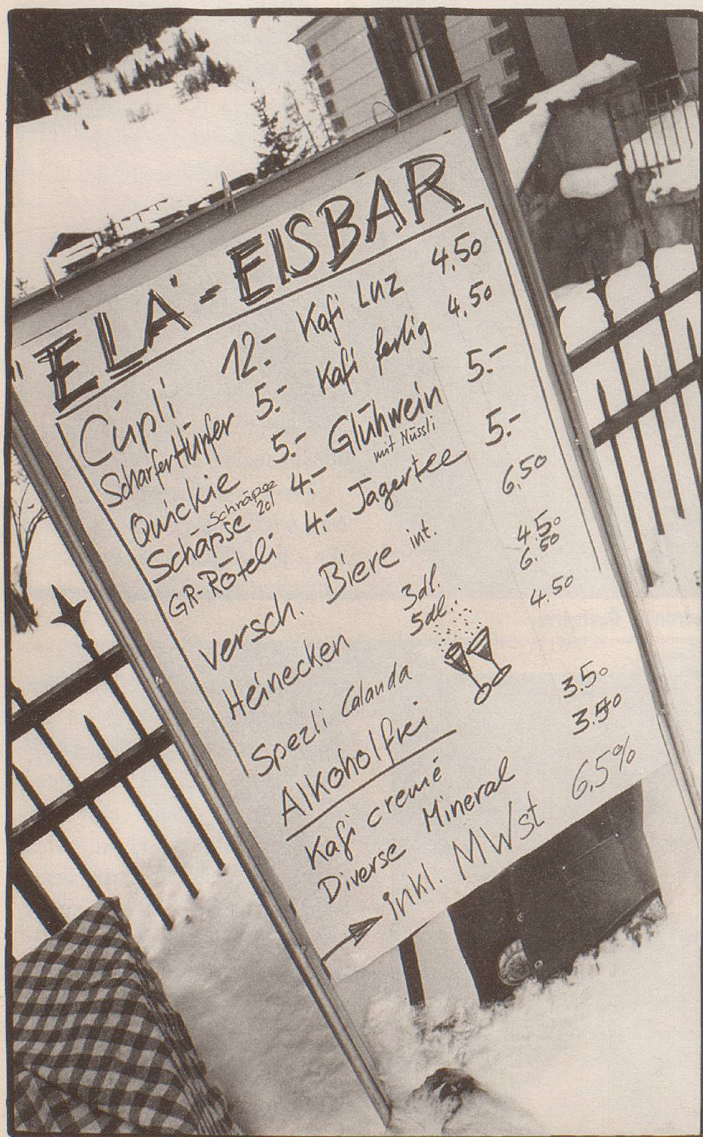 "ELA"-EISBAR
Cüpli 12.- Kafi Luz 4.50
Scharfer Hüpfer 5.- Kafi fertig 4.50
Quickie 5.- Glühwein 5.-
mit Nüssli
Schäpse Schnäpse 2cl 4.- Jägertee 5.-
GR-Röteli 4.-
versch. Biere int. 6,50
Heinecken 3dl. 4.50
5dl. 6.50
Spezli Calanda 4.50
Alkoholfrei
Kafi cremé 3.50
Diverse Mineral 3.50
inkl. MWst 6.5%